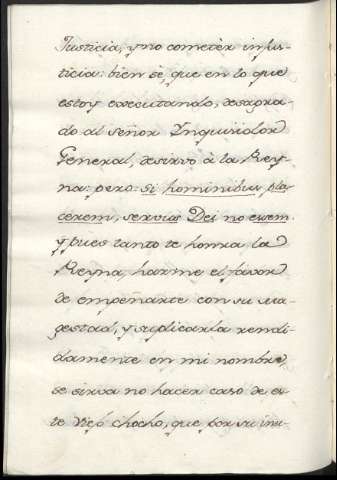 Justicia, y no cometèr inJus-
ticia: bien sè, que en lo que
estoy executando, desagra-
do al Señor Inquisidor
General, desirvo à la Rey-
na: pero: si hominibus pla-
cerem, servus Dei no essem.
y pues tanto te honra la
Reyna, harme el favor
de empeñarte con su ma-
gestad, y suplicarla rendi-
damente en mi nombre,
se sirva no hacer caso de es-
te viejo chocho, que por su ini-